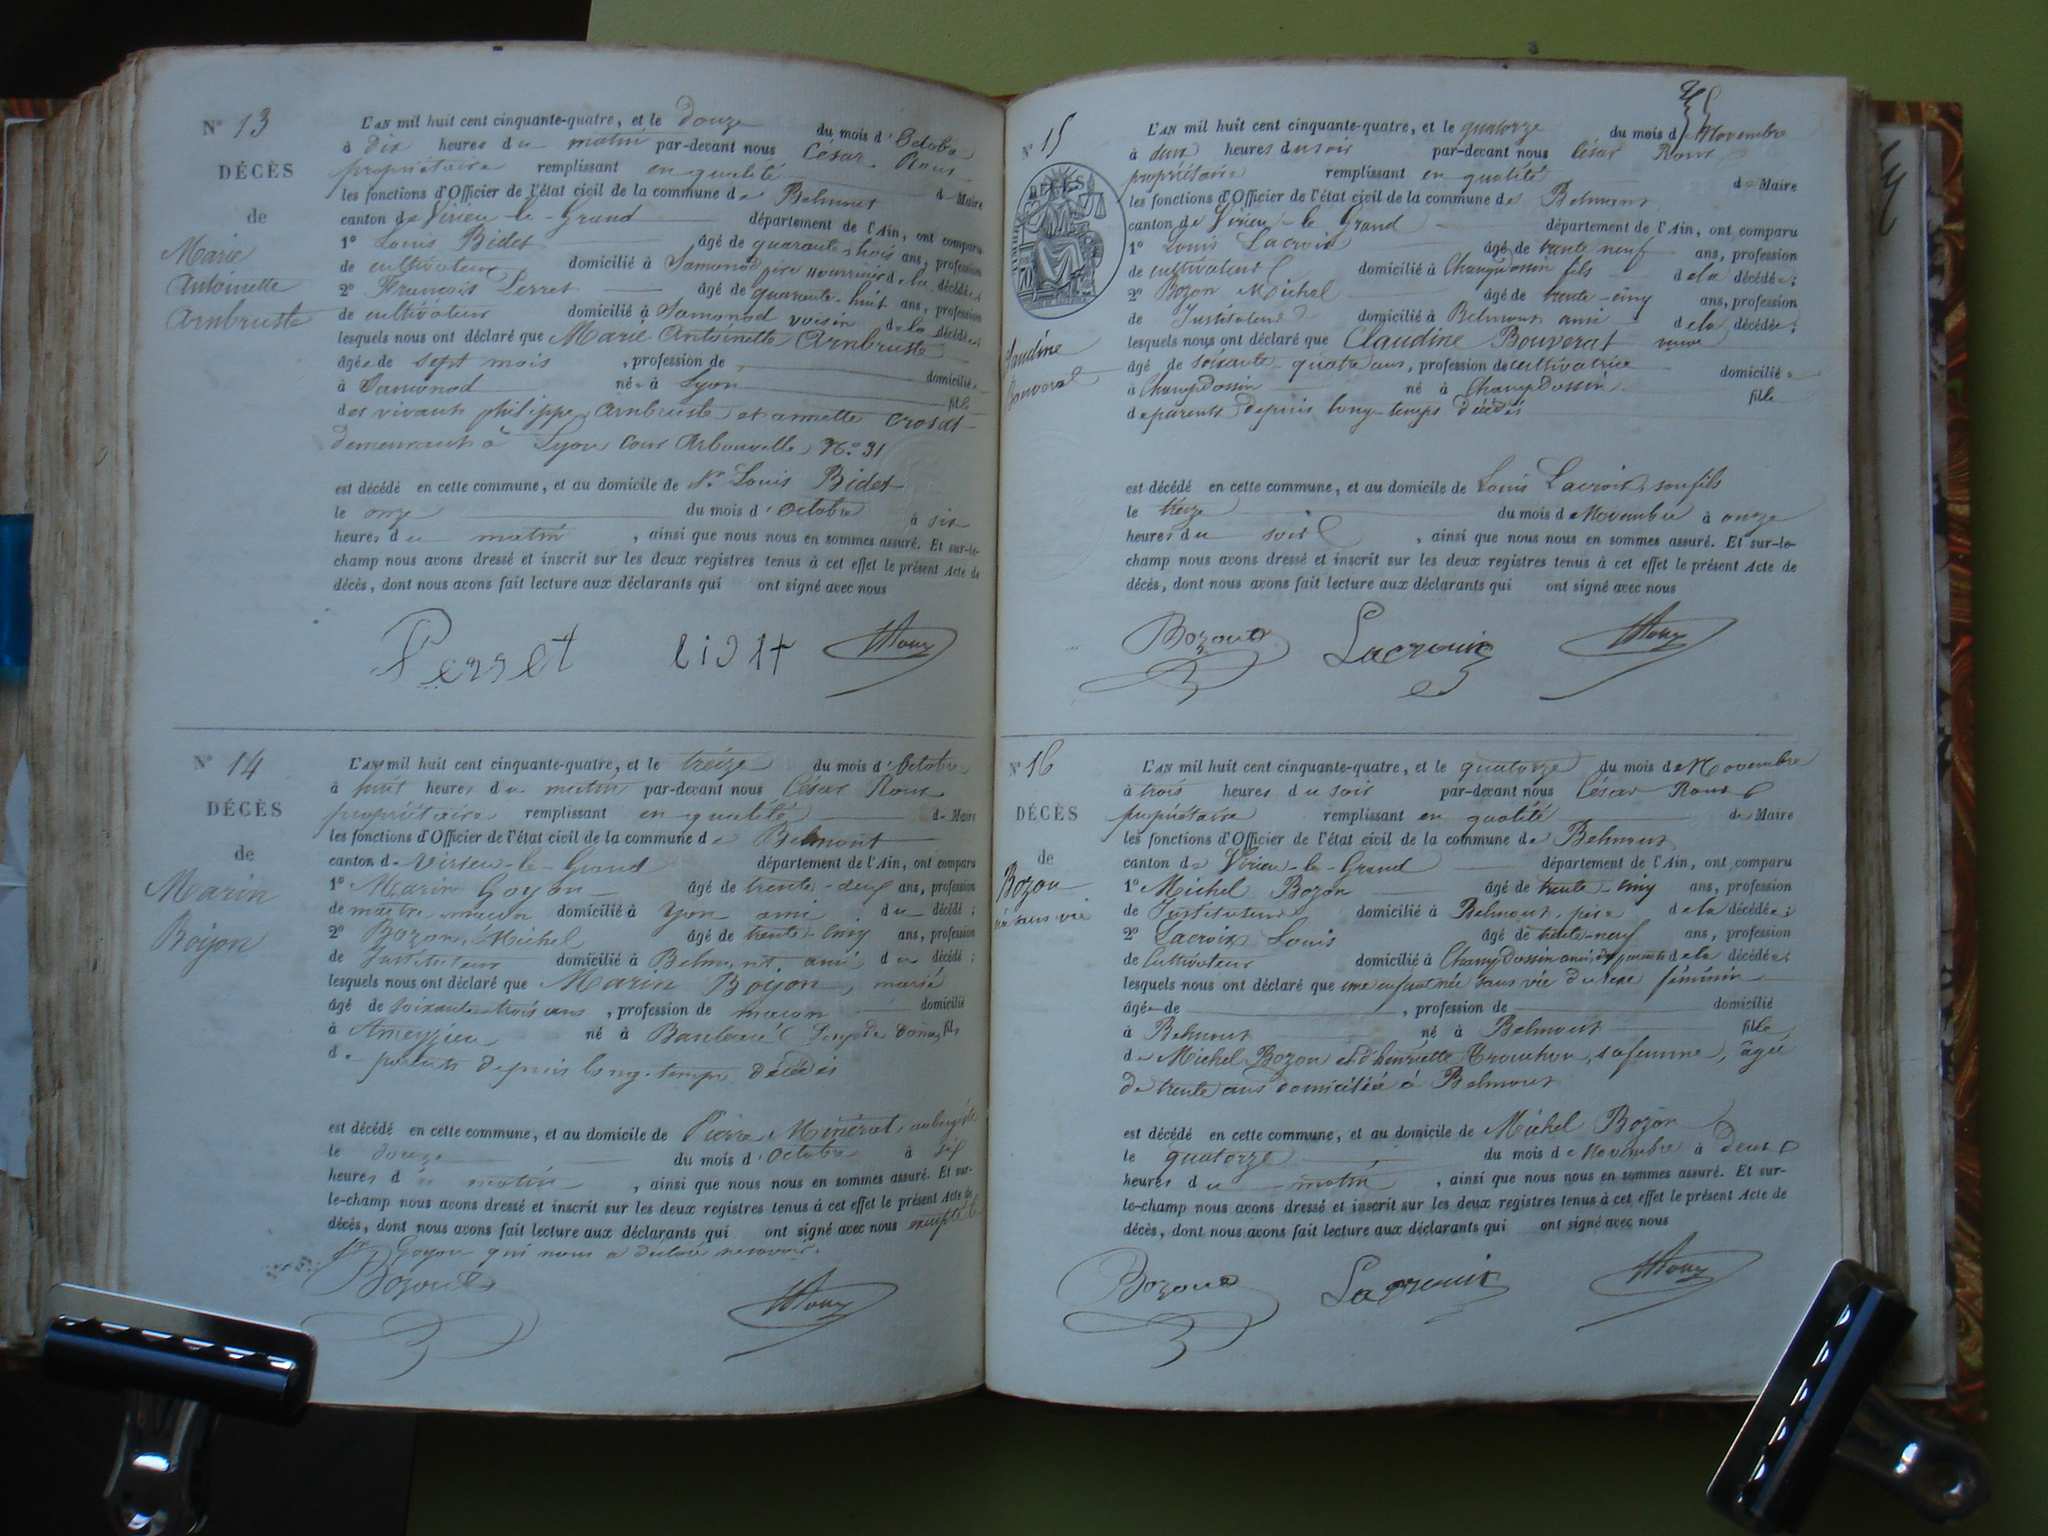 N° 13
DÉCÈS
de
Marie
Antoinette
Arnbruste
L'AN mil huit cent cinquante-quatre, et le douze du mois d'Octobre
à dix heures du matin par-devant nous César Roux
propriétaire remplissant en qualité de Maire
les fonctions d'Officier de l'état civil de la commune de Belmont
canton de Virieu-le-Grand département de l'Ain, ont comparu
1° Louis Bidet âgé de quarante trois ans, profession
de cultivateur domicilié à Samonod père nourricier de la décédée;
2° François Perret âgé de quarante-huit ans, profession
de cultivateur domicilié à Samonod voisin de la décédée;
lesquels nous ont déclaré que Marie Antoinette Arnbruste
âgée de sept mois, profession de domiciliée
à Samonod née à Lyon fille
des vivants philippe Arnbruste et annette Crosat
demeurants à Lyon Cour N° 31
est décédé en cette commune, et au domicile de Sr. Louis Bidet
le onze du mois d'Octobre à six
heures du matin, ainsi que nous nous en sommes assuré. Et sur-le-
champ nous avons dressé et inscrit sur les deux registres tenus à cet effet le présent Acte de
décès, dont nous avons fait lecture aux déclarants qui ont signé avec nous
Perret Bidet Roux
N° 14
DÉCÈS
de
Marin
Boijon
L'AN mil huit cent cinquante-quatre, et le treize du mois d'Octobre
à huit heures du matin par-devant nous César Roux
propriétaire remplissant en qualité de Maire
les fonctions d'Officier de l'état civil de la commune de Belmont
canton de Virieu-le-Grand département de l'Ain, ont comparu
1° Marin Goyon âgé de trente-deux ans, profession
de maître maçon domicilié à Yon ami du décédé;
2° Bozon, Michel âgé de trente-cinq ans, profession
de Instituteur domicilié à Belmont ami du décédé;
lesquels nous ont déclaré que Marin Boijon, marié
âgé de soixante-trois ans, profession de maçon domicilié
à Ameyzieu né à fils
de parents depuis long-temps décédés
est décédé en cette commune, et au domicile de Pierre Minérat, aubergiste
le douze du mois d'Octobre à six
heures du matin, ainsi que nous nous en sommes assuré. Et sur-
le-champ nous avons dressé et inscrit sur les deux registres tenus à cet effet le présent Acte de
décès, dont nous avons fait lecture aux déclarants qui ont signé avec nous excepté le
Sr. Goyon qui nous a déclaré ne savoir.
Bozon Roux
N° 15
Claudine
Bouverat
L'AN mil huit cent cinquante-quatre, et le quatorze du mois de Novembre
à deux heures du soir par-devant nous César Roux
propriétaire remplissant en qualité de Maire
les fonctions d'Officier de l'état civil de la commune de Belmont
canton de Virieu-le Grand département de l'Ain, ont comparu
1° Louis Lacroix âgé de trente neuf ans, profession
de cultivateur domicilié à Champdossin fils de la décédée;
2° Bozon Michel âgé de trente-cinq ans, profession
de Instituteur domicilié à Belmont ami de la décédée;
lesquels nous ont déclaré que Claudine Bouverat veuve
âgé de soixante-quatre ans, profession de cultivatrice domiciliée
à Champdossin né à Champdossin fille
de parents depuis long-temps décédés
est décédé en cette commune, et au domicile de Louis Lacroix, son fils
le treize du mois de Novembre à onze
heures du soir, ainsi que nous nous en sommes assuré. Et sur-le-
champ nous avons dressé et inscrit sur les deux registres tenus à cet effet le présent Acte de
décès, dont nous avons fait lecture aux déclarants qui ont signé avec nous
Bozon Lacroix Roux
N° 16
DÉCÈS
de
Bozon
né sans vie
L'AN mil huit cent cinquante-quatre, et le quatorze du mois de Novembre
à trois heures du soir par-devant nous César Roux
propriétaire remplissant en qualité de Maire
les fonctions d'Officier de l'état civil de la commune de Belmont
canton de Virieu-le-Grand département de l'Ain, ont comparu
1° Michel Bozon âgé de trente-cinq ans, profession
de Instituteur domicilié à Belmont, père de la décédée;
2° Lacroix Louis âgé de trente-neuf ans, profession
de Cultivateur domicilié à Champdossin ami de la décédée;
lesquels nous ont déclaré que une enfant née sans vie du sexe féminin
âgée de, profession de domicilié
à Belmont né à Belmont fille
de Michel Bozon et d'henriette Trouchon, sa femme, âgée
de trente ans domiciliée à Belmont
est décédé en cette commune, et au domicile de Michel Bozon
le quatorze du mois de Novembre à deux
heures du matin, ainsi que nous nous en sommes assuré. Et sur-
le-champ nous avons dressé et inscrit sur les deux registres tenus à cet effet le présent Acte de
décès, dont nous avons fait lecture aux déclarants qui ont signé avec nous
Bozon Lacroix Roux